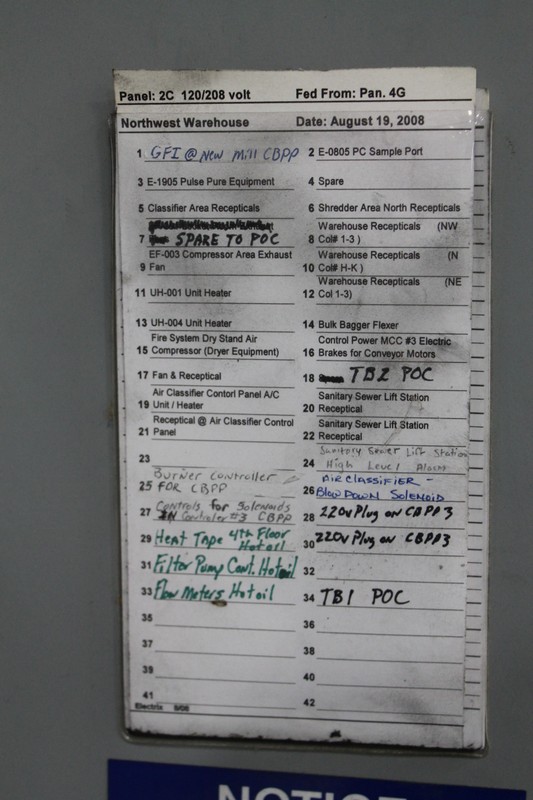 Panel: 2C 120/208 volt Fed From: Pan. 4G
Northwest Warehouse Date: August 19, 2008
1 GFI @ New Mill CBPP
2 E-0805 PC Sample Port
3 E-1905 Pulse Pure Equipment
4 Spare
5 Classifier Area Recepticals
6 Shredder Area North Recepticals
7 SPARE TO POC
Warehouse Recepticals (NW
8 Col# 1-3 )
EF-003 Compressor Area Exhaust
9 Fan
Warehouse Recepticals (N
10 Col# H-K )
11 UH-001 Unit Heater
Warehouse Recepticals (NE
12 Col 1-3)
13 UH-004 Unit Heater
14 Bulk Bagger Flexer
Fire System Dry Stand Air
15 Compressor (Dryer Equipment)
Control Power MCC #3 Electric
16 Brakes for Conveyor Motors
17 Fan & Receptical
18 TB2 POC
Air Classifier Contorl Panel A/C
19 Unit / Heater
Sanitary Sewer Lift Station
20 Receptical
Receptical @ Air Classifier Control
21 Panel
Sanitary Sewer Lift Station
22 Receptical
23
Sanitary Sewer Lift Station
24 High Level Alarm
Burner Controller
25 FOR CBPP
AIR CLASSIFIER -
26 Blow DOWN SOLENOID
Controls for Solenoids
27 IN Controler #3 CBPP
28 220v Plug on CBPP3
29 Heat Tape 4th Floor
Hot oil
30 220v Plug on CBPP3
31 Filter Pump Cont. Hot oil
32
33 Flow Meters Hot oil
34 TB1 POC
35
36
37
38
39
40
41
42
Electrix 8/08
NOTICE